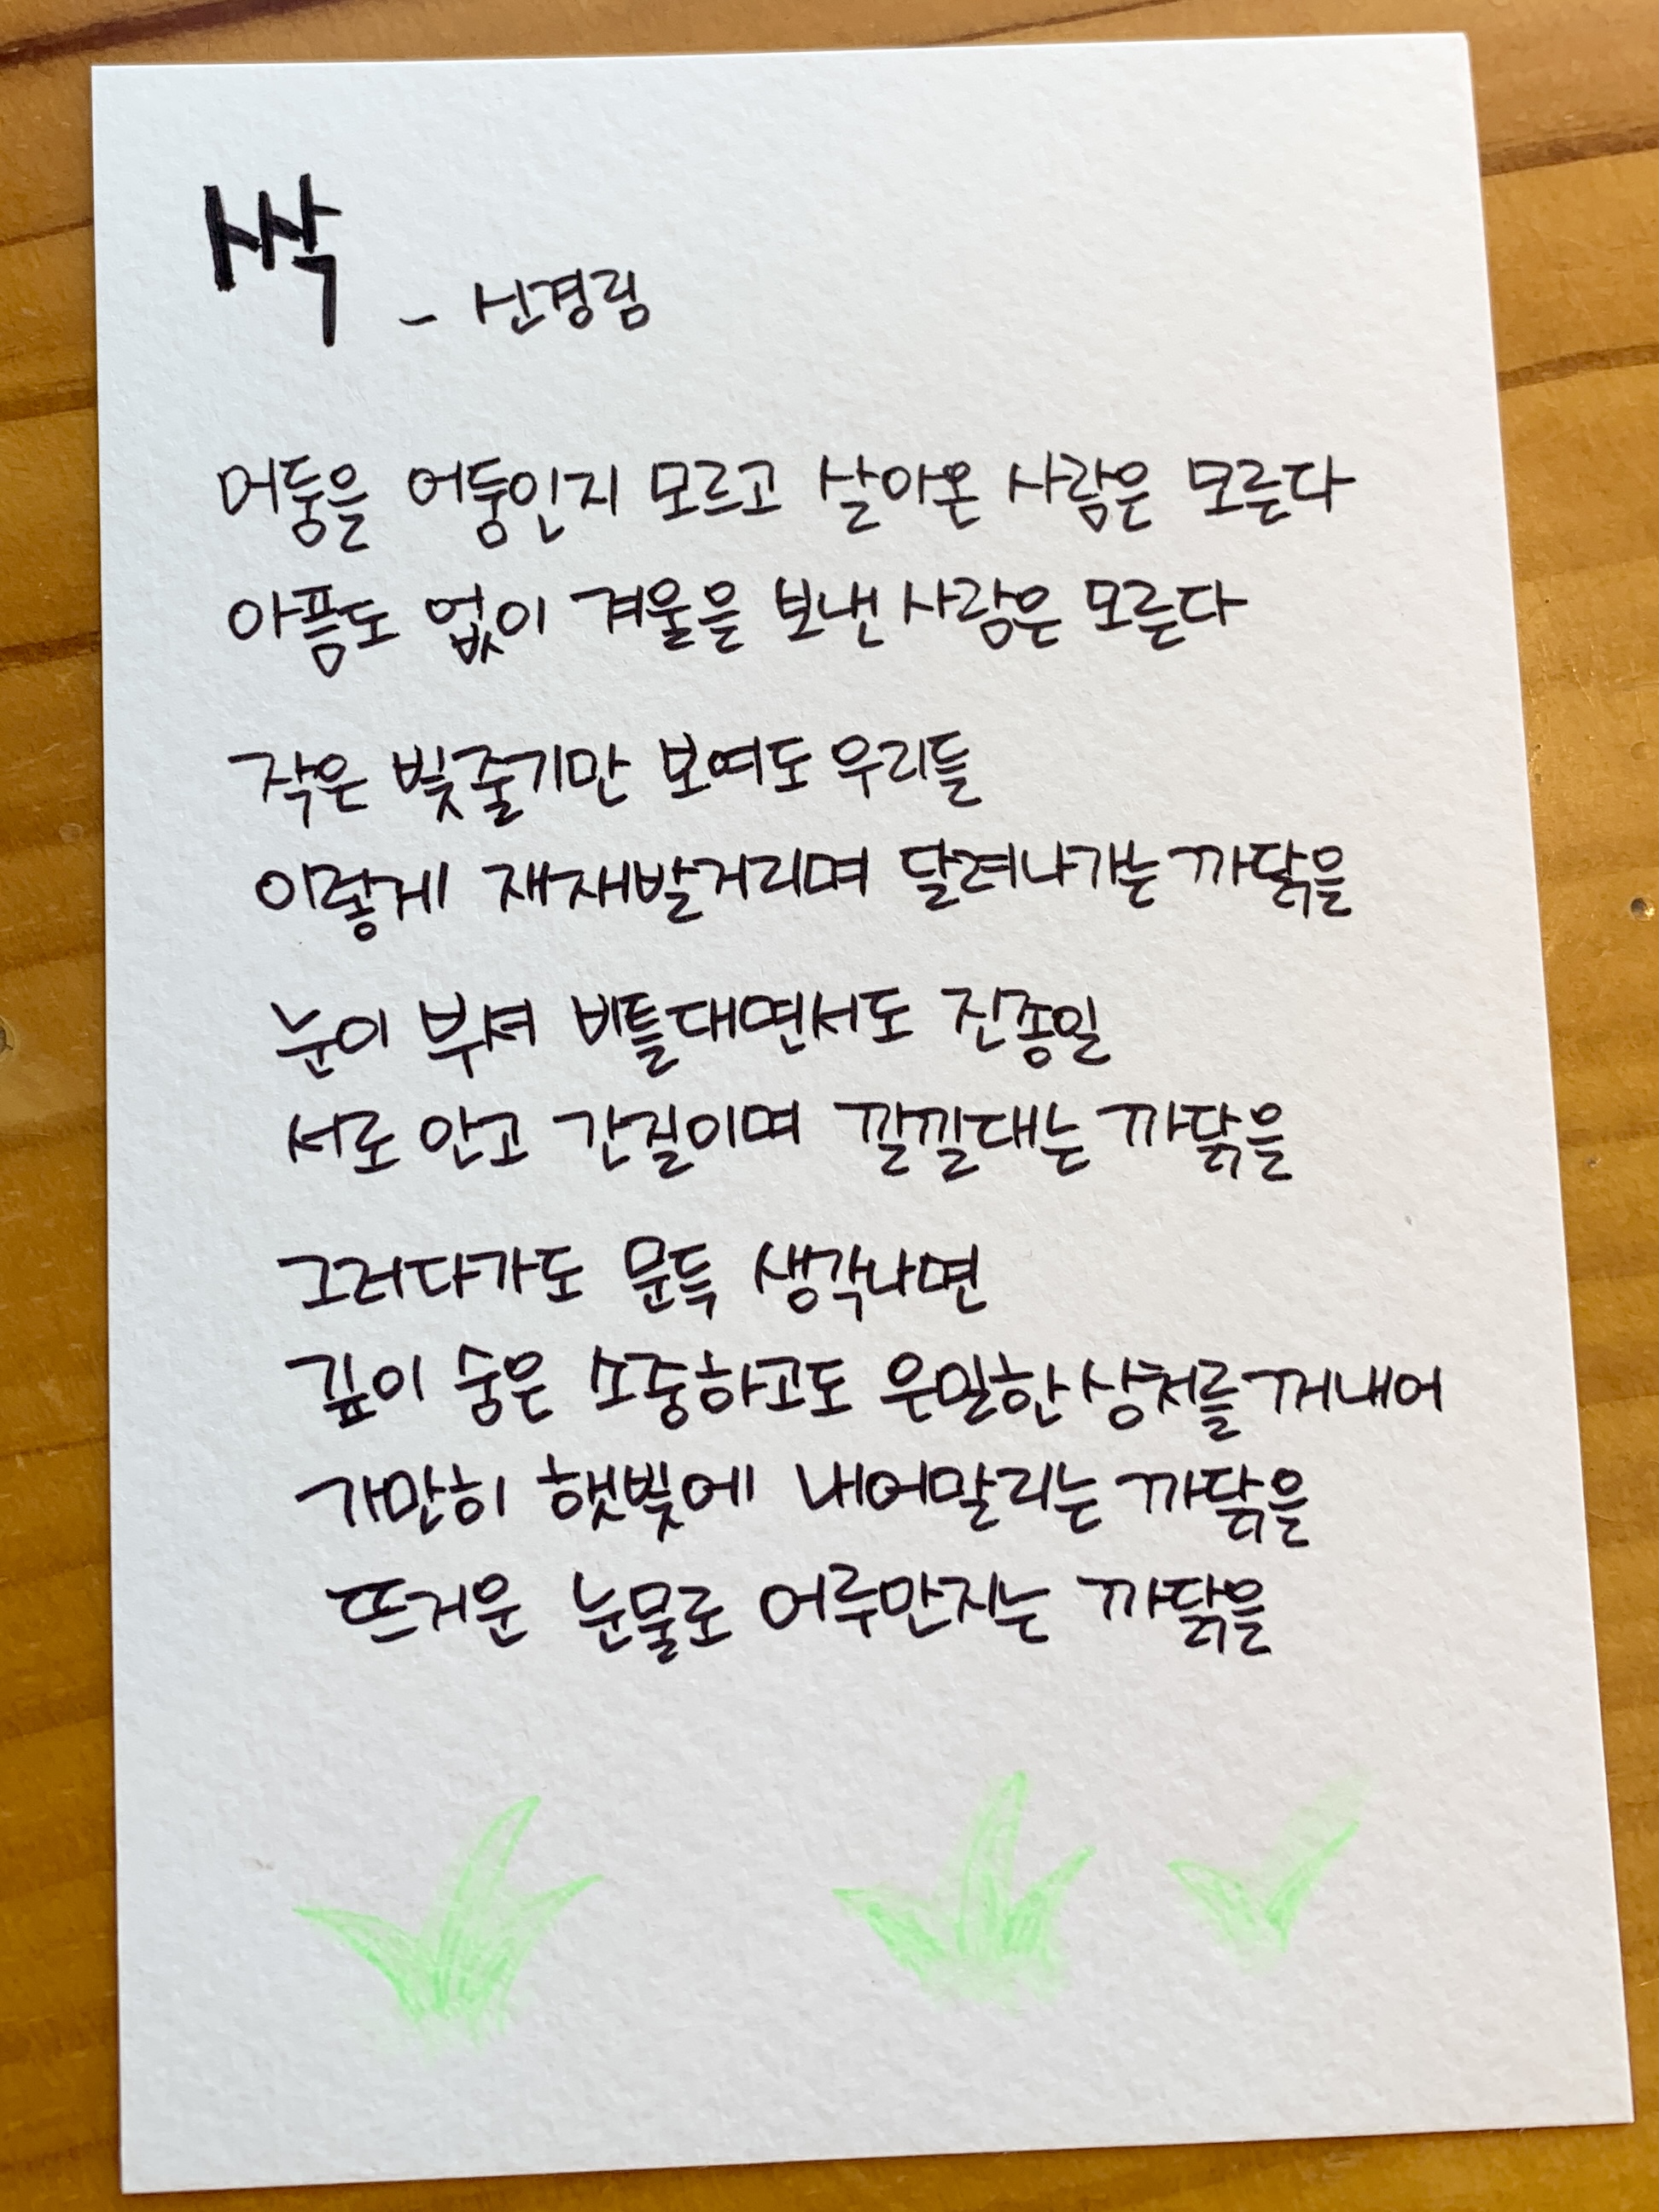 싹
- 신경림
어둠을 어둠인지 모르고 살아온 사람은 모른다
아픔도 없이 겨울을 보낸 사람은 모른다
작은 빛줄기만 보여도 우리들
이렇게 재재발거리며 달려나가는 까닭을
눈이 부셔 비틀대면서도 진종일
서로 안고 간질이며 깔깔대는 까닭을
그러다가도 문득 생각나면
깊이 숨은 소중하고도 은밀한 상처를 꺼내어
가만히 햇빛에 내어말리는 까닭을
뜨거운 눈물로 어루만지는 까닭을